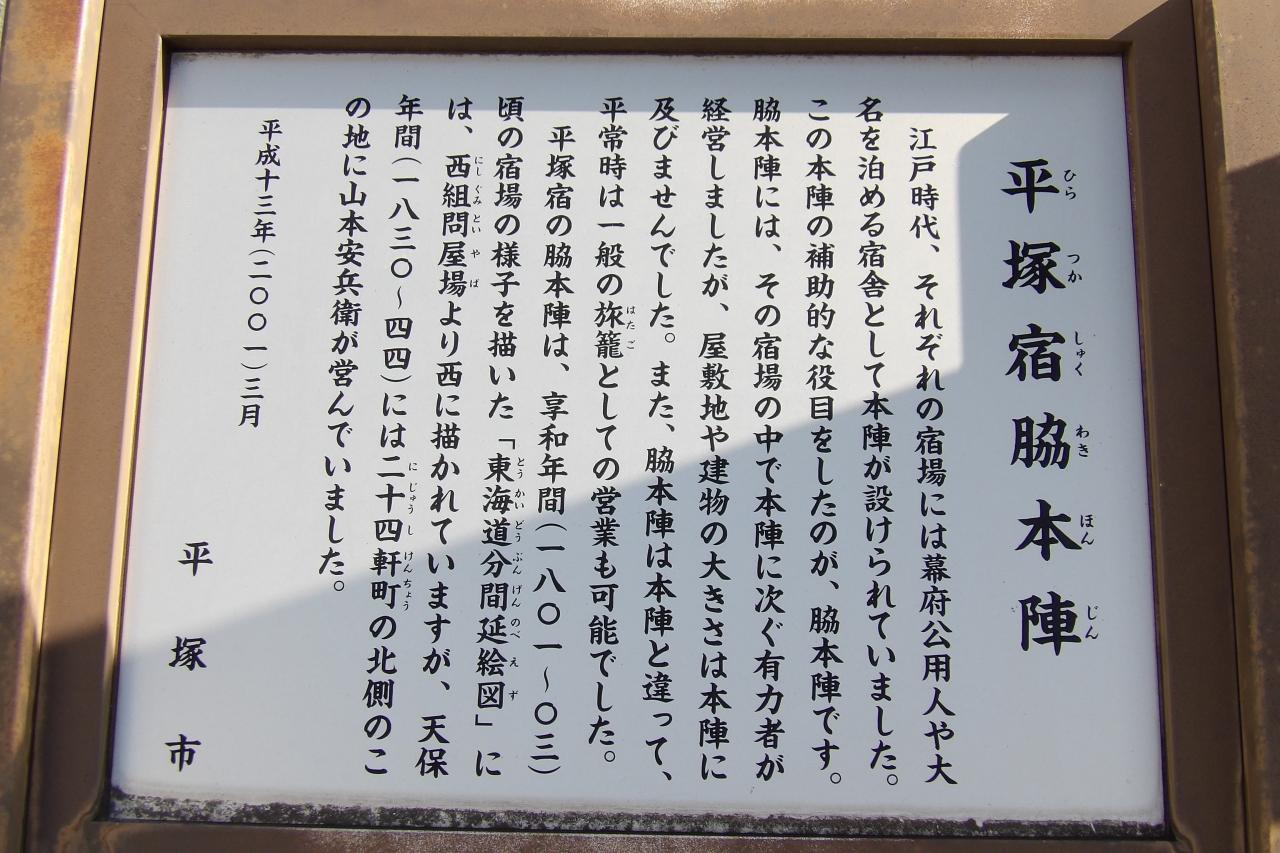 平塚宿脇本陣
ひら つか しゅく わき ほん じん
江戸時代、それぞれの宿場には幕府公用人や大
名を泊める宿舎として本陣が設けられていました。
この本陣の補助的な役目をしたのが、脇本陣です。
脇本陣には、その宿場の中で本陣に次ぐ有力者が
経営しましたが、屋敷地や建物の大きさは本陣に
及びませんでした。また、脇本陣は本陣と違って、
平常時は一般の旅籠としての営業も可能でした。
はたご
平塚宿の脇本陣は、享和年間(一八〇一~〇三)
頃の宿場の様子を描いた「東海道分間延絵図」に
とうかいどうぶんげんのべえず
は、西組問屋場より西に描かれていますが、天保
にしぐみといやば
年間(一八三〇~四四)には二十四軒町の北側のこ
にじゅうしけんちょう
の地に山本安兵衛が営んでいました。
平成十三年(二〇〇一)三月
平塚市